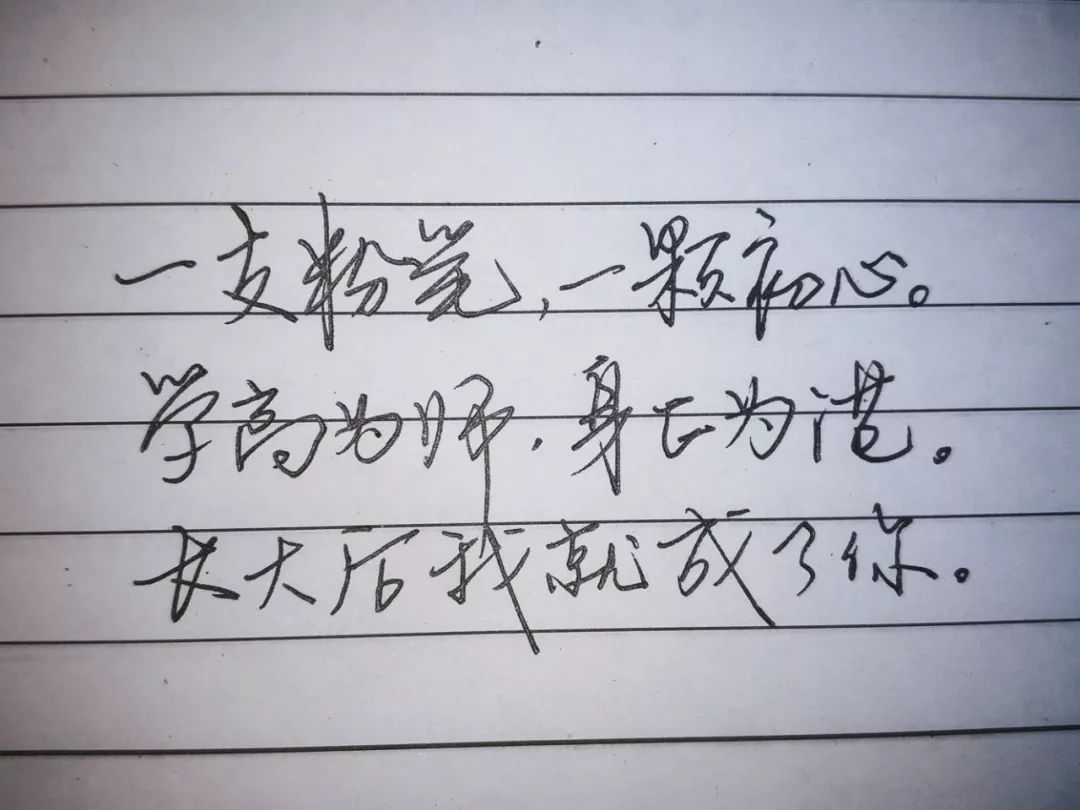 一支粉笔，一颗初心。
学高为师，身正为范。
长大后我就成了你。